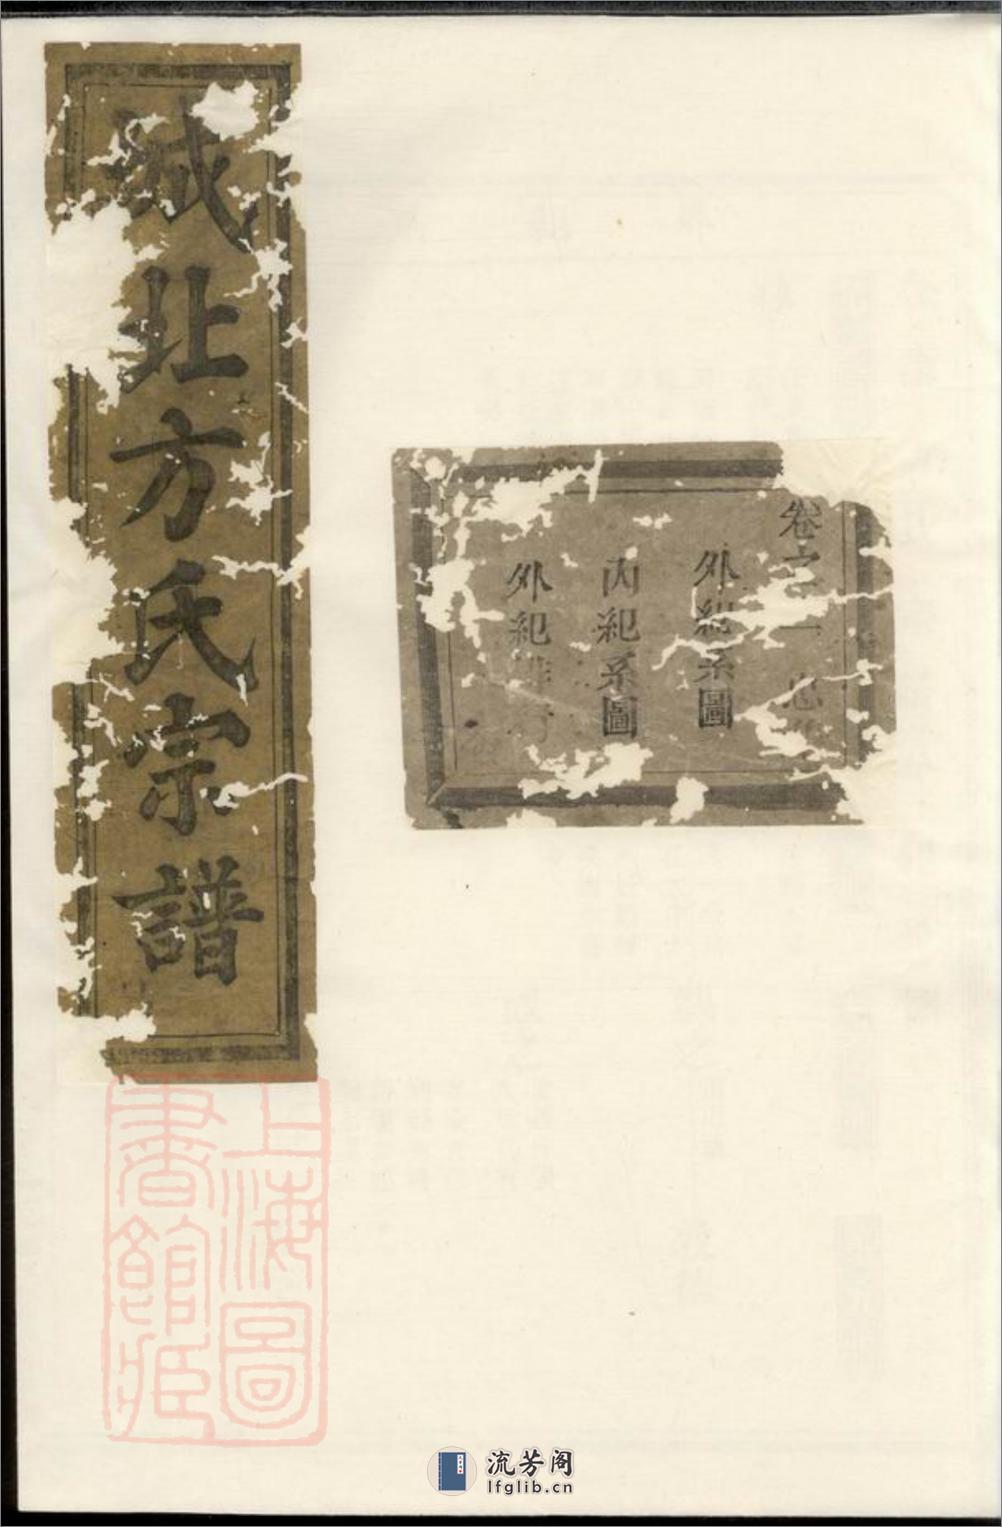 城北方氏宗譜
卷之一
外紀系圖
內紀系圖
外紀
上海圖書館藏
流芳阁
lfglib.cn